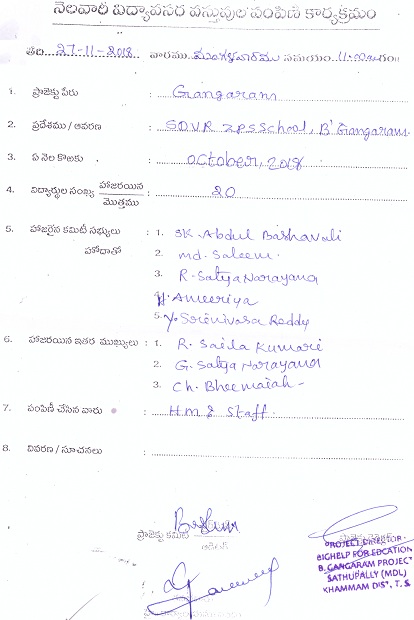 నెలవారీ విద్యావసర వస్తువుల పంపిణీ కార్యక్రమం
తేది 27-11-2018 వారము మంగళవారము సమయం 11.00
1. ప్రాజెక్టు పేరు : Gangaram
2. ప్రదేశము / ఆవరణ : SDVR ZPSSchool, B' Gangaram
3. ఏ నెల కొఱకు : October, 2018
4. విద్యార్థుల సంఖ్య హాజరయిన / మొత్తము : 20
5. హాజరైన కమిటీ సభ్యులు : 1. SK. Abdul Bashavali
హోదాతో 2. md. Saleem.
3. R. Satya Narayana
4. Ameeriya
5. Y. Sreenivasa Reddy
6. హాజరయిన ఇతర ముఖ్యులు : 1. R. Saida Kumari
2. G. Satya Narayana
3. Ch. Bheemaiah -
7. పంపిణీ చేసిన వారు : H.M & Staff.
8. వివరణ / సూచనలు :
ప్రాజెక్టు కమిటీ
ఆడిటర్
PROJECT DIRECTOR
BIGHELP FOR EDCATION
B. GANGARAM PROJECT
SATHUPALLY (MDL)
KHAMMAM DIST, T.S